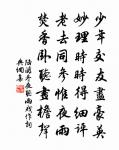 少年交友盡豪英
妙理時時得細評
老去同參惟夜雨
焚香臥聽畫簷聲
陸游冬夜聽雨戲作詞
典網集